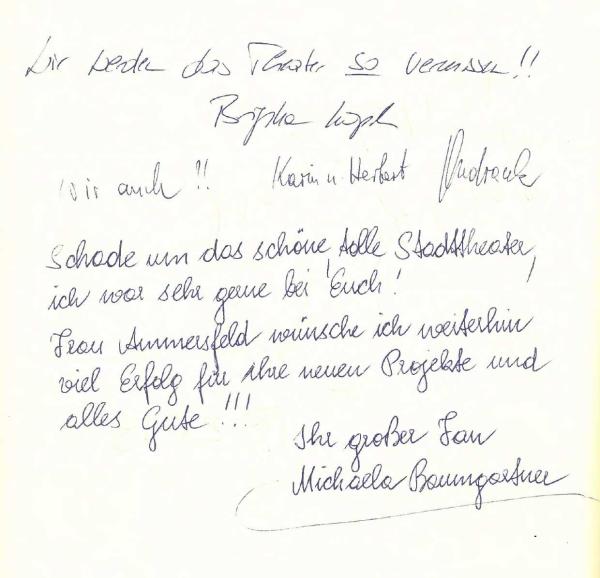 Wir werden das Theater so vermissen!!
Wir auch!! Karin u. Herbert
Schade um das schöne, tolle Stadttheater,
ich war sehr gerne bei Euch!
Frau Ammersfeld wünsche ich weiterhin
viel Erfolg für ihre neuen Projekte und
alles Gute!!!
Ihr großer Fan
Michaela Baumgartner